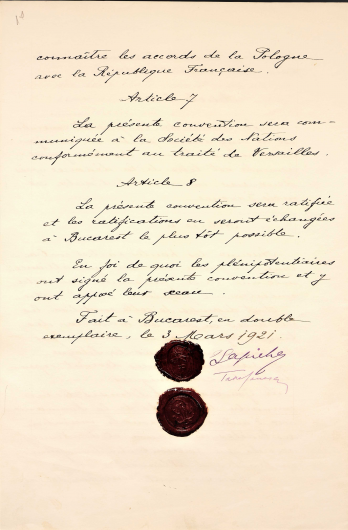 connaître les accords de la Pologne
avec la République Française.
Article 7
La présente convention sera com-
muniquée à la Société des Nations
conformément au traité de Versailles.
Article 8
La présente convention sera ratifiée
et les ratifications en seront échangées
à Bucarest le plus tôt possible.
En foi de quoi les plénipotentiaires
ont signé la présente convention et y
ont apposé leur sceau.
Fait à Bucarest, en double
exemplaire, le 3 Mars 1921.